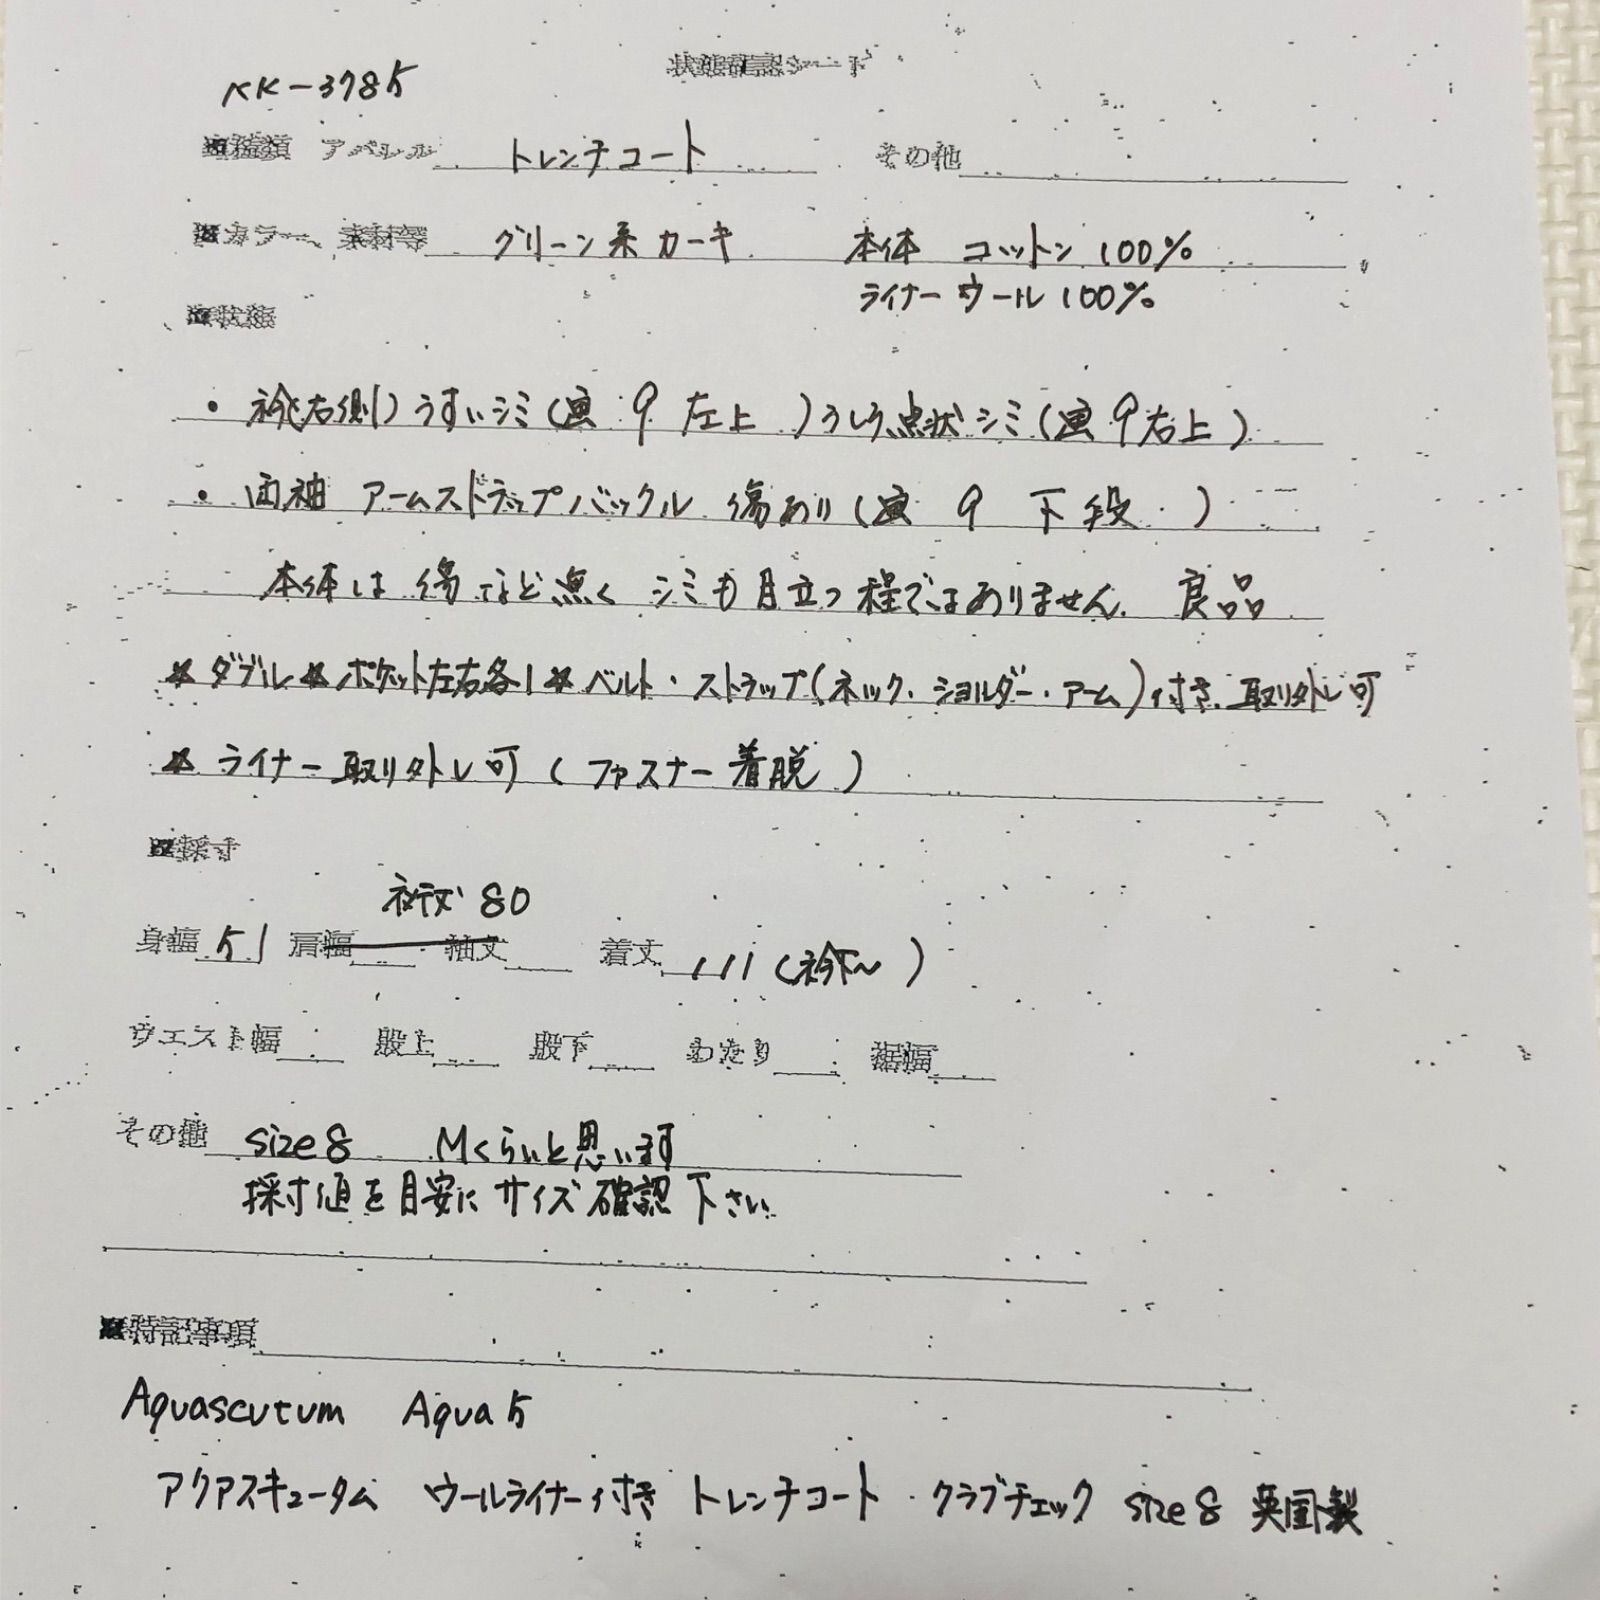 状態確認シート
KK-3785
■種類 アパレル トレンチコート その他
■カラー、素材等 グリーン系カーキ 本体 コットン 100%
ライナー ウール 100%
■状態
・衿(右側)うすいシミ(画 9 左上 )うしろ点状シミ(画9右上)
・両袖 アームストラップバックル 傷あり(画 9 下段 )
本体は傷など無く シミも目立つ程ではありません. 良品
★ダブル★ポケット左右各1★ベルト・ストラップ(ネック・ショルダー・アーム)付き.取り外し可
★ライナー取り外し可(ファスナー着脱)
■採寸
裄丈 80
身幅 51 肩幅 袖丈 着丈 111(衿下~)
ウエスト幅 股上 股下 わたり 裾幅
その他 size8 Mくらいと思います
採寸値を目安にサイズ確認下さい.
■特記事項
Aquascutum Aqua5
アクアスキュータム ウールライナー付き トレンチコート・クラブチェック size8 英国製